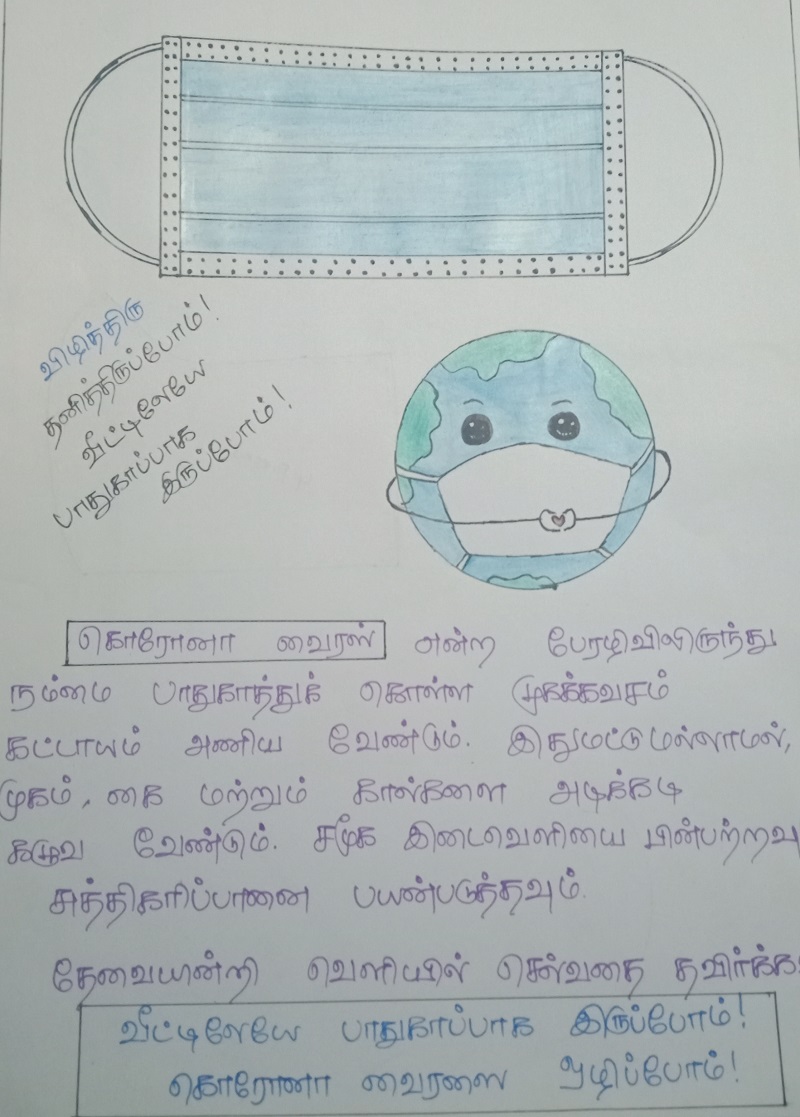 விழித்திரு
தனித்திருப்போம்!
வீட்டிலேயே
பாதுகாப்பாக
இருப்போம்!
கொரோனா வைரஸ் என்ற பேரழிவிலிருந்து
நம்மை பாதுகாத்துக் கொள்ள முகக்கவசம்
கட்டாயம் அணிய வேண்டும். இதுமட்டுமல்லாமல்,
முகம், கை மற்றும் கால்களை அடிக்கடி
கழுவ வேண்டும். சமூக இடைவெளியை பின்பற்றவு
சுத்திகரிப்பானை பயன்படுத்தவும்.
தேவையின்றி வெளியில் செல்வதை தவிர்க்க
வீட்டிலேயே பாதுகாப்பாக இருப்போம்!
கொரோனா வைரஸை அழிப்போம்!